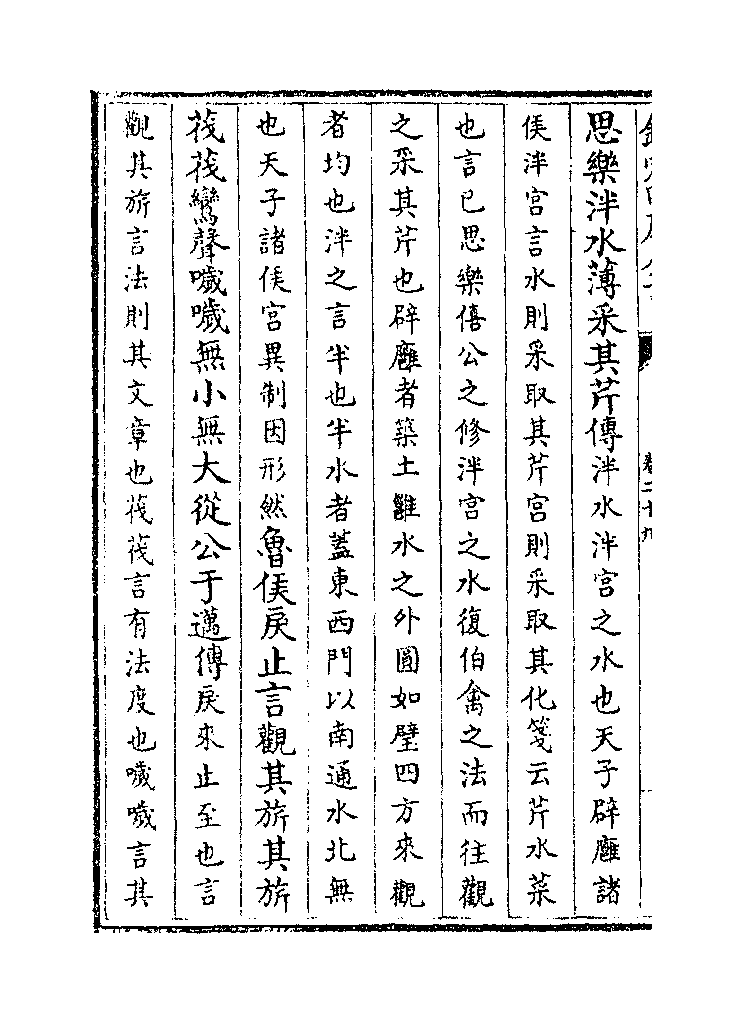 思樂泮水薄采其芹傳泮水泮宮之水也天子辟廱諸
侯泮宮言水則采取其芹宮則采取其化箋云芹水菜
也言已思樂僖公之修泮宮之水復伯禽之法而往觀
之采其芹也辟廱者築土雝水之外圓如璧四方來觀
者均也泮之言半也半水者蓋東西門以南通水北無
也天子諸侯宮異制因形然魯侯戾止言觀其旂其旂
茷茷鸞聲噦噦無小無大從公于邁傳戾來止至也言
觀其旂言法則其文章也茷茷言有法度也噦噦言其
卷二十九